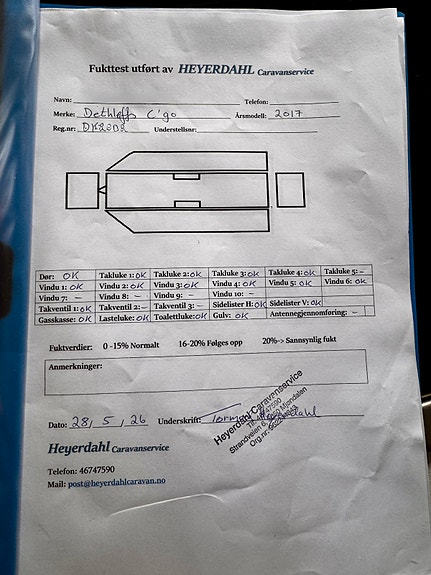 Fukttest utført av HEYERDAHL Caravanservice
Navn: Telefon:
Merke: Dethleffs C'go Årsmodell: 2017
Reg.nr: Understellsnr:
Dør: OK Takluke 1: OK Takluke 2: OK Takluke 3: OK Takluke 4: OK Takluke 5: –
Vindu 1: OK Vindu 2: OK Vindu 3: OK Vindu 4: OK Vindu 5: OK Vindu 6: OK
Vindu 7: – Vindu 8: – Vindu 9: – Vindu 10: –
Takventil 1: OK Takventil 2: – Takventil 3: – Sidelister H: OK Sidelister V: OK
Gasskasse: OK Lasteluke: OK Toalettluke: OK Gulv: OK Antennegjennomføring: –
Fuktverdier: 0 -15% Normalt 16-20% Følges opp 20%-> Sannsynlig fukt
Anmerkninger:
Dato: 28, 5, 26 Underskrift:
Heyerdahl Caravanservice
Strandveien 6, Mjøndalen
Org.nr:
Heyerdahl Caravanservice
Telefon: 46747590
Mail: post@heyerdahlcaravan.no